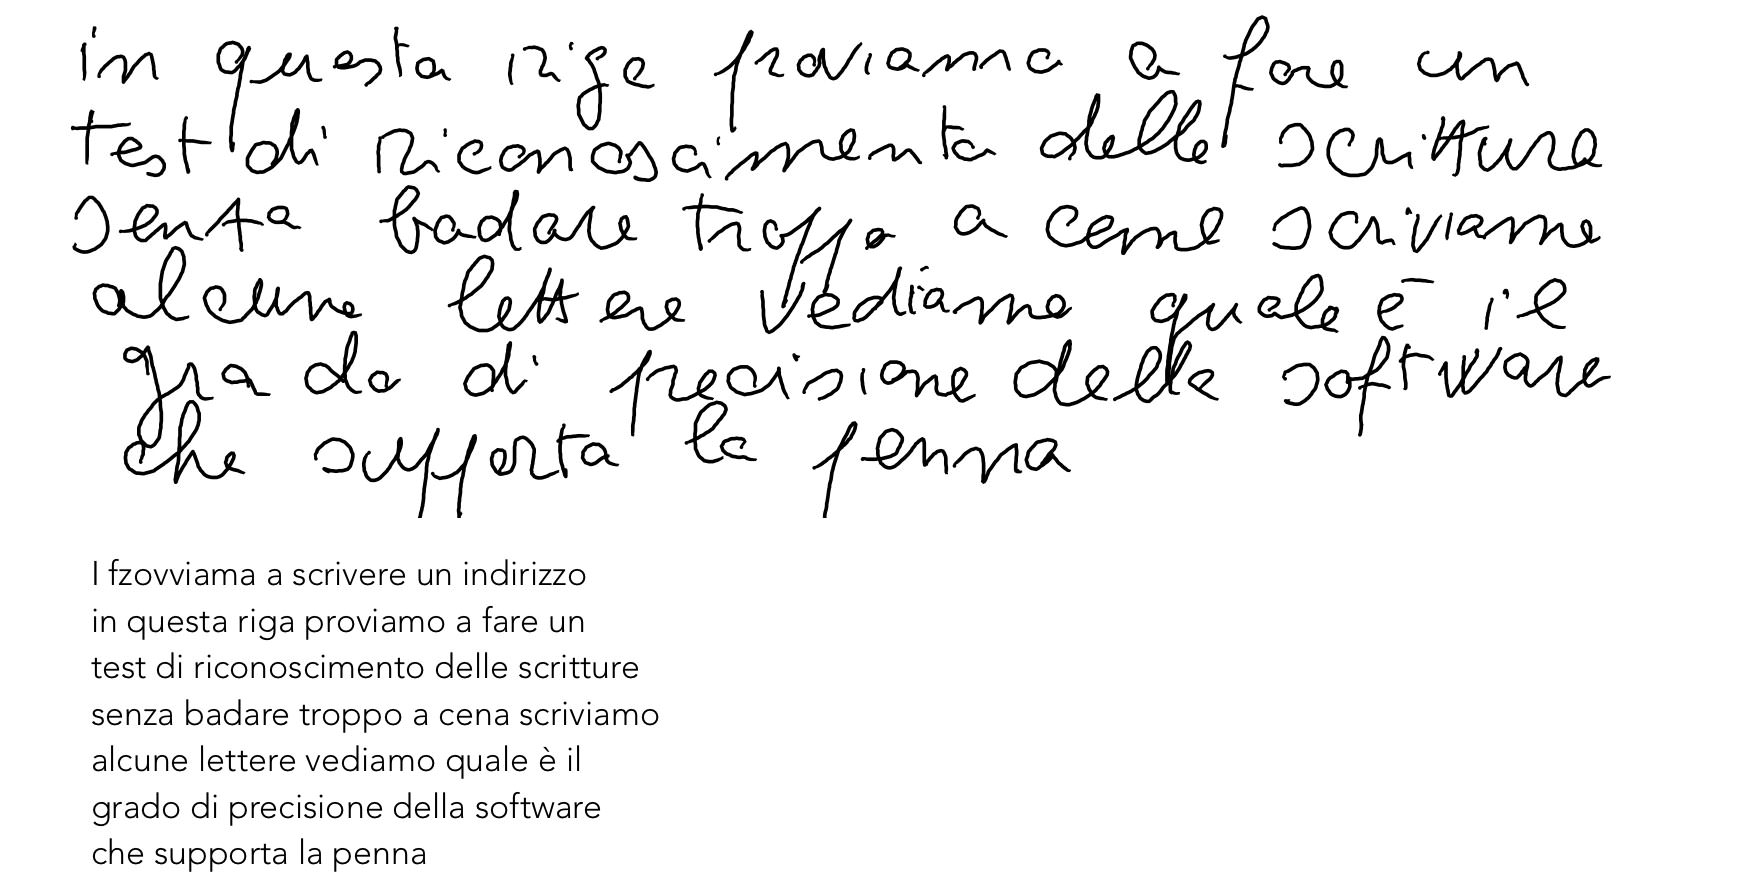 in questa riga proviamo a fare un
test di riconoscimento della scrittura
senza badare troppo a come scriviamo
alcune lettere vediamo quale è il
grado di precisione della software
che supporta la penna
I fzovviama a scrivere un indirizzo
in questa riga proviamo a fare un
test di riconoscimento delle scritture
senza badare troppo a cena scriviamo
alcune lettere vediamo quale è il
grado di precisione della software
che supporta la penna